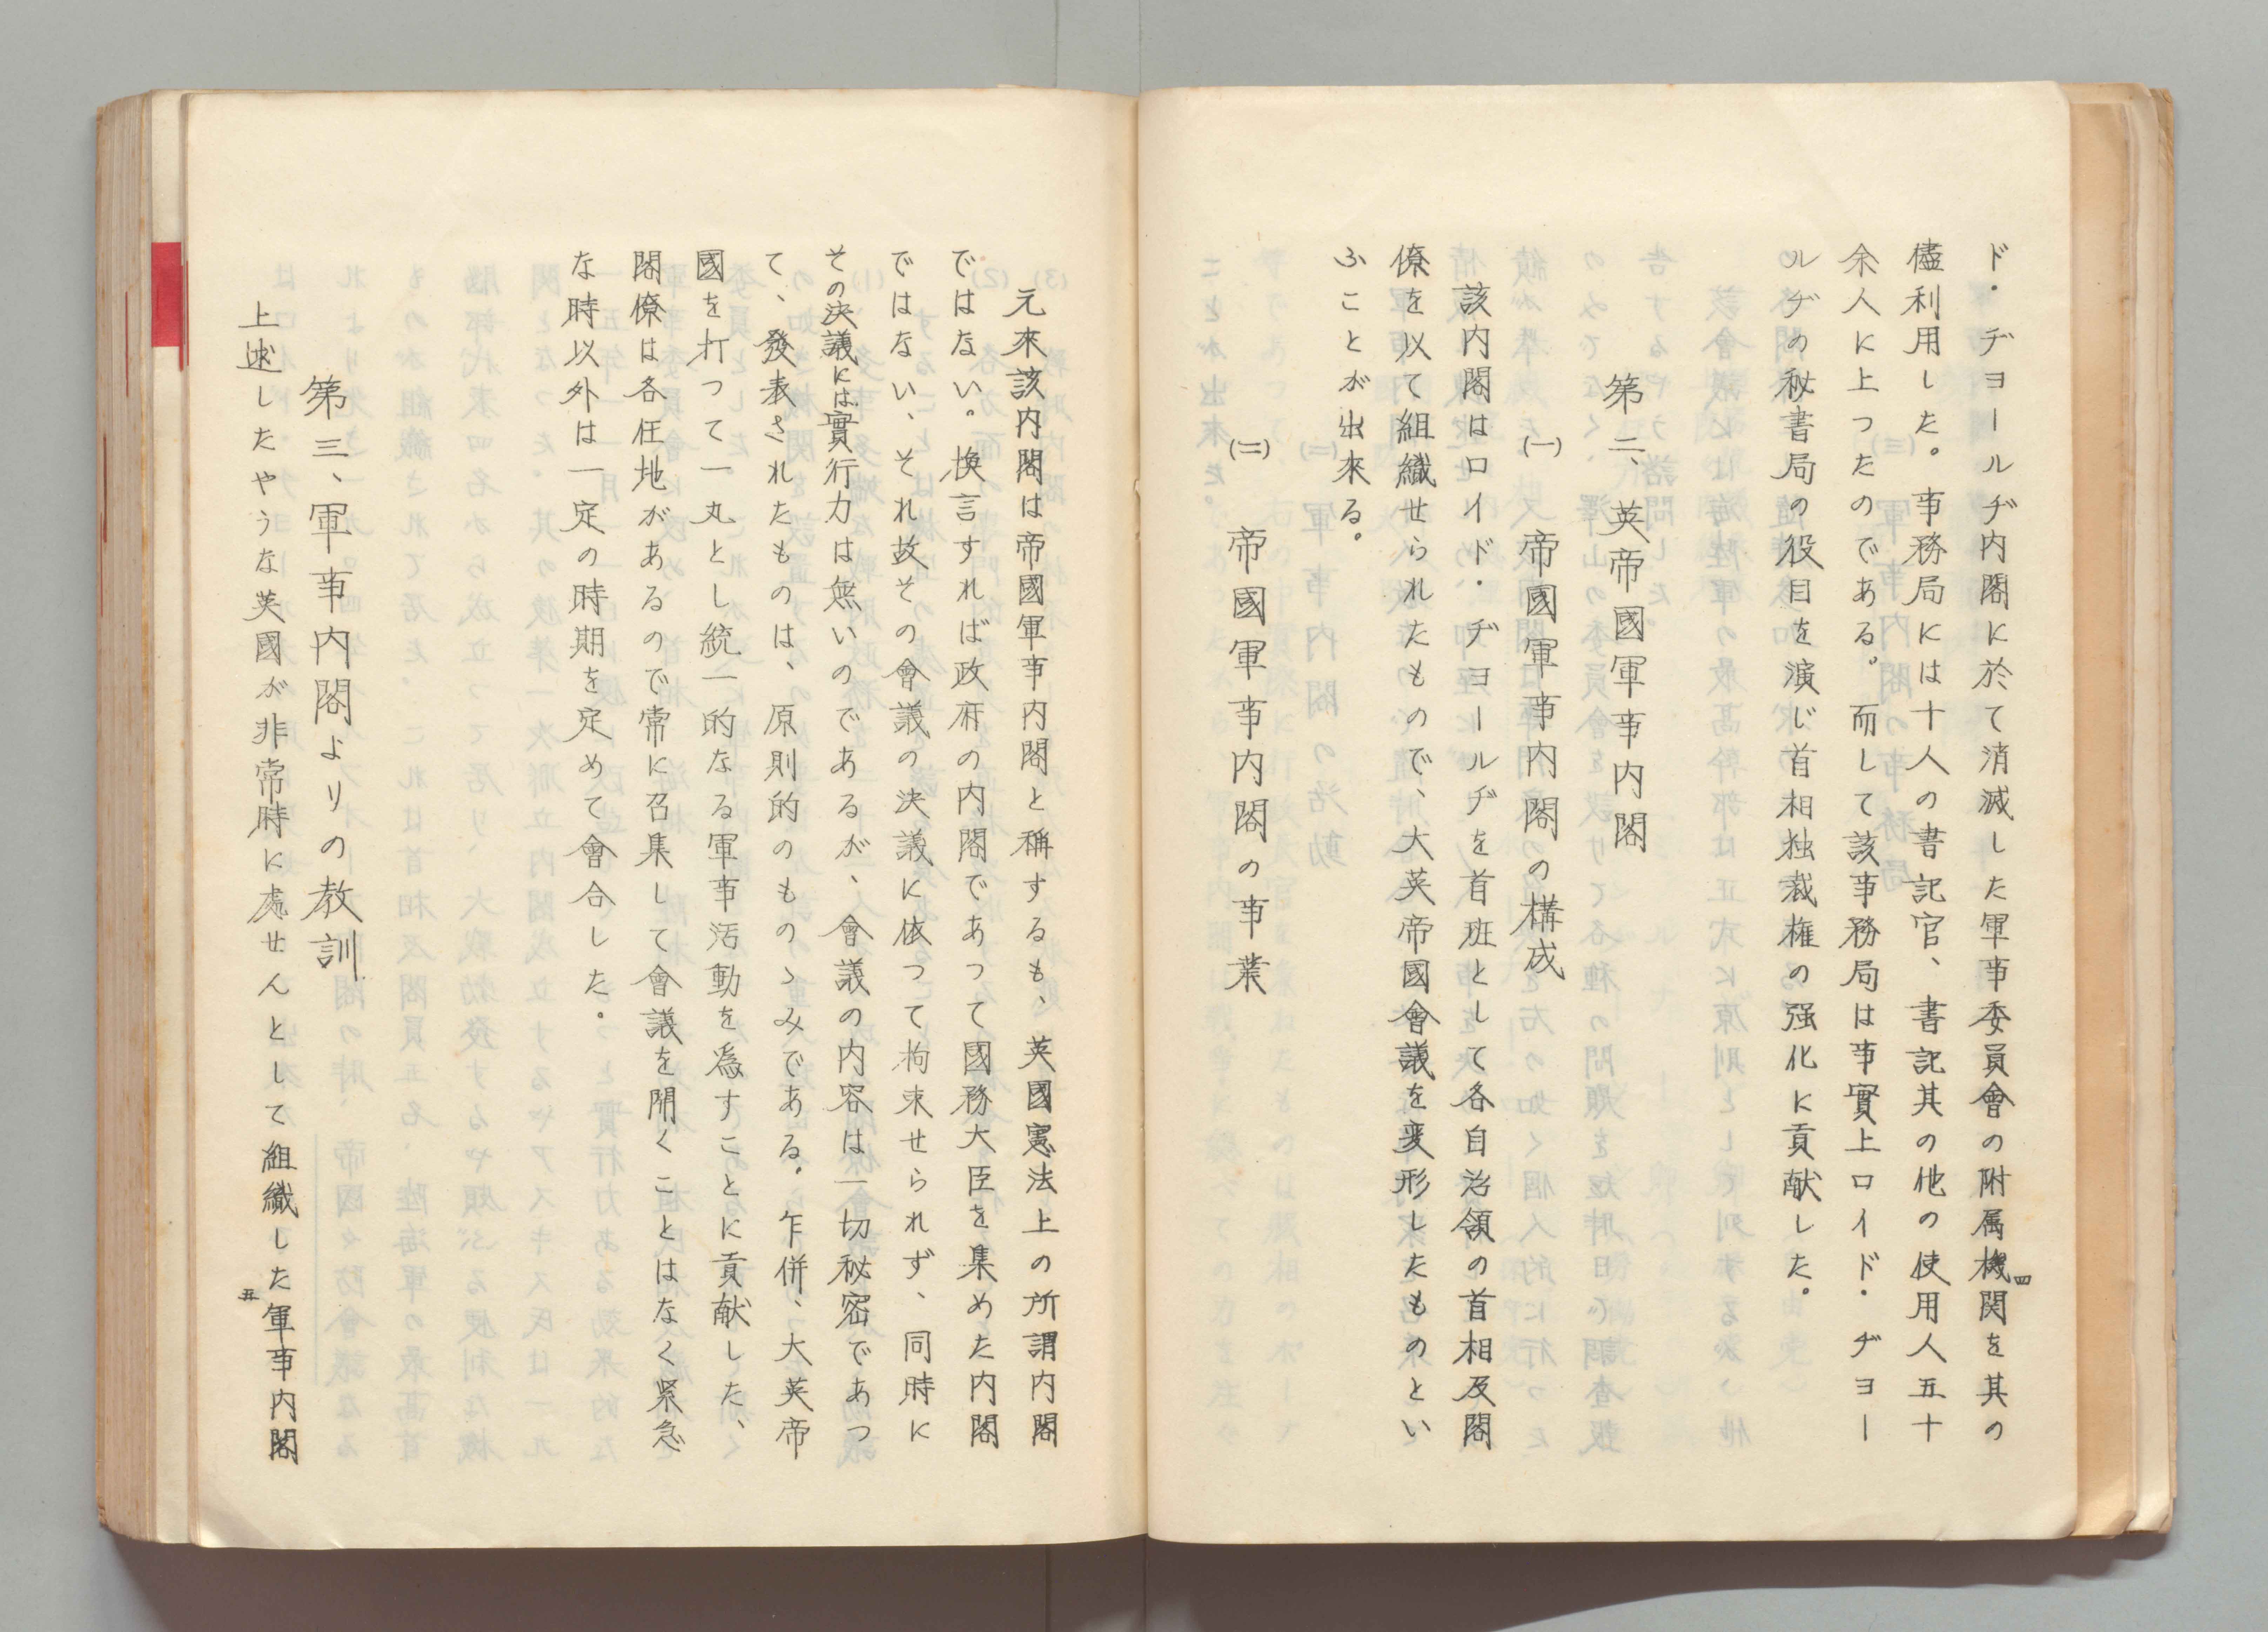 ド・ヂヨールヂ内閣に於て消滅した軍事委員會の附属機関を其の
儘利用した。事務局には十人の書記官、書記其の他の使用人五十
余人に上つたのである。而して該事務局は事實上ロイド・ヂヨー
ルヂの秘書局の役目を演じ首相独裁権の强化に貢献した。
第二、英帝國軍事内閣
(一) 帝國軍事内閣の構成
該内閣はロイド・ヂヨールヂを首班として各自治領の首相及閣
僚を以て組織せられたもので、大英帝國會議を変形したものとい
ふことが出來る。
(二) 帝國軍事内閣の事業
四
元來該内閣は帝國軍事内閣と稱するも、英國憲法上の所謂内閣
ではない。換言すれば政府の内閣であつて國務大臣を集めた内閣
ではない、それ故その會議の決議に依つて拘束せられず、同時に
その決議には實行力は無いのであるが、會議の内容は一切秘密であつ
て、發表されたものは、原則的のものゝみである。乍併、大英帝
國を打つて一丸とし統一的なる軍事活動を爲すことに貢献した、
閣僚は各任地があるので常に召集して會議を開くことはなく緊急
な時以外は一定の時期を定めて會合した。
第三、軍事内閣よりの教訓
上述したやうな英國が非常時に處せんとして組織した軍事内閣
五